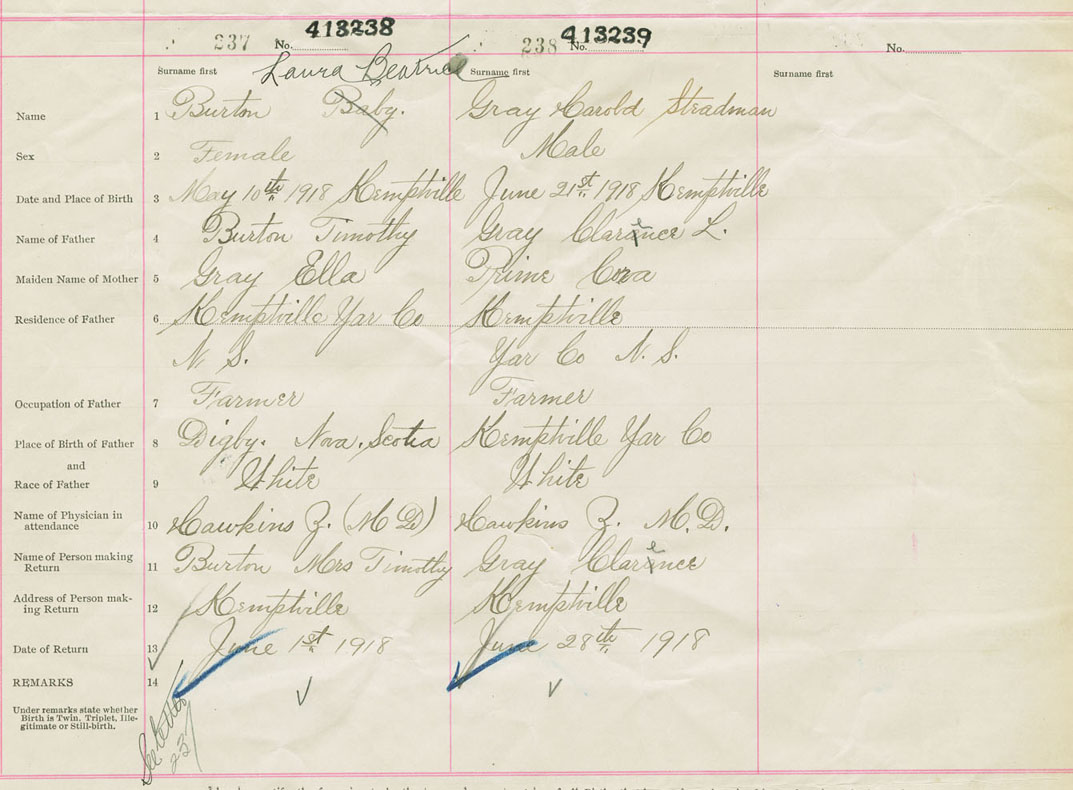 237 No. 413238 238 No. 413239 No.
Surname first Laura Beatrice Surname first Surname first
Name 1 Burton Baby. Gray Harold Steadman
Sex 2 Female Male
Date and Place of Birth 3 May 10th 1918 Kemptville June 21st 1918 Kemptville
Name of Father 4 Burton Timothy Gray Clarence L.
Maiden Name of Mother 5 Gray Ella Prime Cora
Residence of Father 6 Kemptville Yar Co Kemptville
N. S. Yar Co N. S.
Occupation of Father 7 Farmer Farmer
Place of Birth of Father 8 Digby. Nova Scotia Kemptville Yar Co
and
Race of Father 9 White White
Name of Physician in
attendance 10 Hawkins Z. (M D) Hawkins Z. M.D.
Name of Person making
Return 11 Burton Mrs Timothy Gray Clarence
Address of Person mak-
ing Return 12 Kemptville Kemptville
Date of Return 13 June 1st 1918 June 28th 1918
REMARKS 14
Under remarks state whether
Birth is Twin, Triplet, Ille-
gitimate or Still-birth.
See letter
237